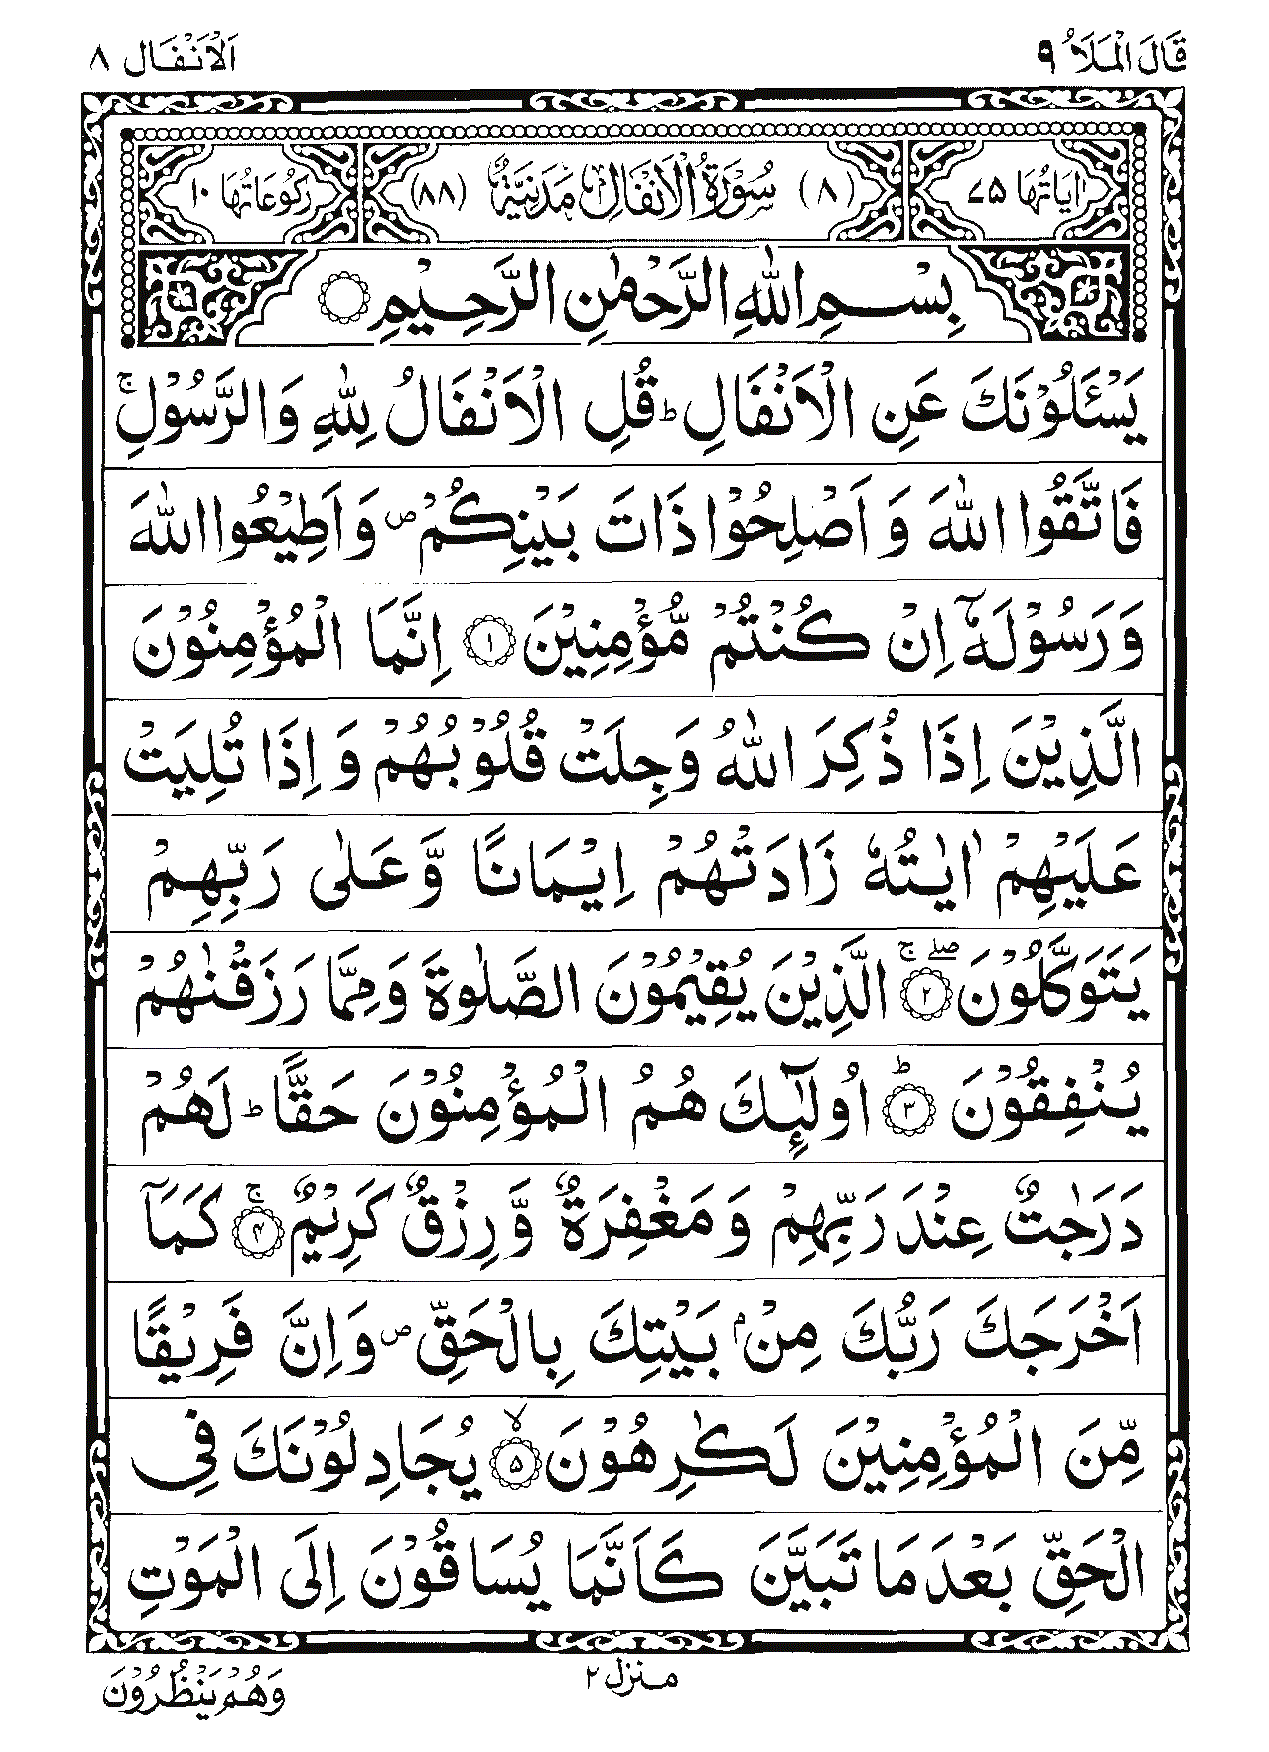 قَالَ الْمَلَاُ ٩ اَلْاَنْفَال ٨
اٰيَاتُهَا ٧٥ (٨) سُوْرَةُ الْاَنْفَالِ مَدَنِيَّةٌ (٨٨) رُكُوْعَاتُهَا ١٠
بِسْمِ اللّٰهِ الرَّحْمٰنِ الرَّحِيْمِ ۝
يَسْـَٔلُوْنَكَ عَنِ الْاَنْفَالِ ؕ قُلِ الْاَنْفَالُ لِلّٰهِ وَالرَّسُوْلِ ۚ
فَاتَّقُوا اللّٰهَ وَ اَصْلِحُوْا ذَاتَ بَيْنِكُمْ ۪ وَ اَطِيْعُوا اللّٰهَ
وَ رَسُوْلَهٗۤ اِنْ كُنْتُمْ مُّؤْمِنِيْنَ ۝١ اِنَّمَا الْمُؤْمِنُوْنَ
الَّذِيْنَ اِذَا ذُكِرَ اللّٰهُ وَجِلَتْ قُلُوْبُهُمْ وَ اِذَا تُلِيَتْ
عَلَيْهِمْ اٰيٰتُهٗ زَادَتْهُمْ اِيْمَانًا وَّ عَلٰى رَبِّهِمْ
يَتَوَكَّلُوْنَ ۝٢ ۖۚ الَّذِيْنَ يُقِيْمُوْنَ الصَّلٰوةَ وَ مِمَّا رَزَقْنٰهُمْ
يُنْفِقُوْنَ ۝٣ ؕ اُولٰٓئِكَ هُمُ الْمُؤْمِنُوْنَ حَقًّا ؕ لَهُمْ
دَرَجٰتٌ عِنْدَ رَبِّهِمْ وَ مَغْفِرَةٌ وَّ رِزْقٌ كَرِيْمٌ ۝٤ ۚ كَمَاۤ
اَخْرَجَكَ رَبُّكَ مِنْۢ بَيْتِكَ بِالْحَقِّ ۪ وَ اِنَّ فَرِيْقًا
مِّنَ الْمُؤْمِنِيْنَ لَكٰرِهُوْنَ ۝٥ ۙ يُجَادِلُوْنَكَ فِي
الْحَقِّ بَعْدَ مَا تَبَيَّنَ كَاَنَّمَا يُسَاقُوْنَ اِلَى الْمَوْتِ
منزل ٢
وَهُمْ يَنْظُرُوْنَ